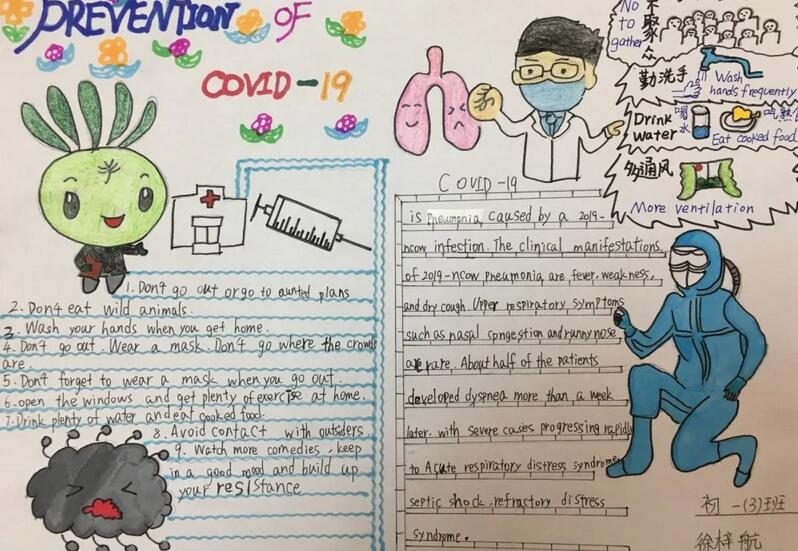 PREVENTION OF
COVID-19
1. Don't go out or go to aunted plans
2. Don't eat wild animals.
3. Wash your hands when you get home.
4. Don't go out. Wear a mask. Don't go where the crowds
are.
5. Don't forget to wear a mask when you go out.
6. open the windows and get plenty of exercise at home.
7. Drink plenty of water and eat cooked food.
8. Avoid contact with outsiders.
9. Watch more comedies, keep
in a good mood and build up
your resistance
No
to
gather
不聚众
勤洗手
Wash
hands frequently
Drink
water
喝水
Eat cooked food
多通风
More ventilation
COVID-19
is Pneumonia, caused by a 2019-
ncov infection. The clinical manifestations
of 2019-ncov pneumonia are fever, weakness,
and dry cough. Upper respiratory symptoms
such as nasal congestion and runny nose
are rare. About half of the patients
developed dyspnea more than a week
later, with severe cases progressing rapidly
to Acute respiratory distress syndrome
septic shock, refractory distress
syndrome.
初一(3)班
徐梓航